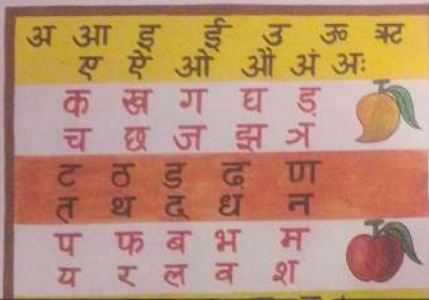 अ आ इ ई उ ऊ ऋ
ए ऐ ओ औ अं अः
क ख ग घ ड़
च छ ज झ ञ
ट ठ ड ढ ण
त थ द ध न
प फ ब भ म
य र ल व श